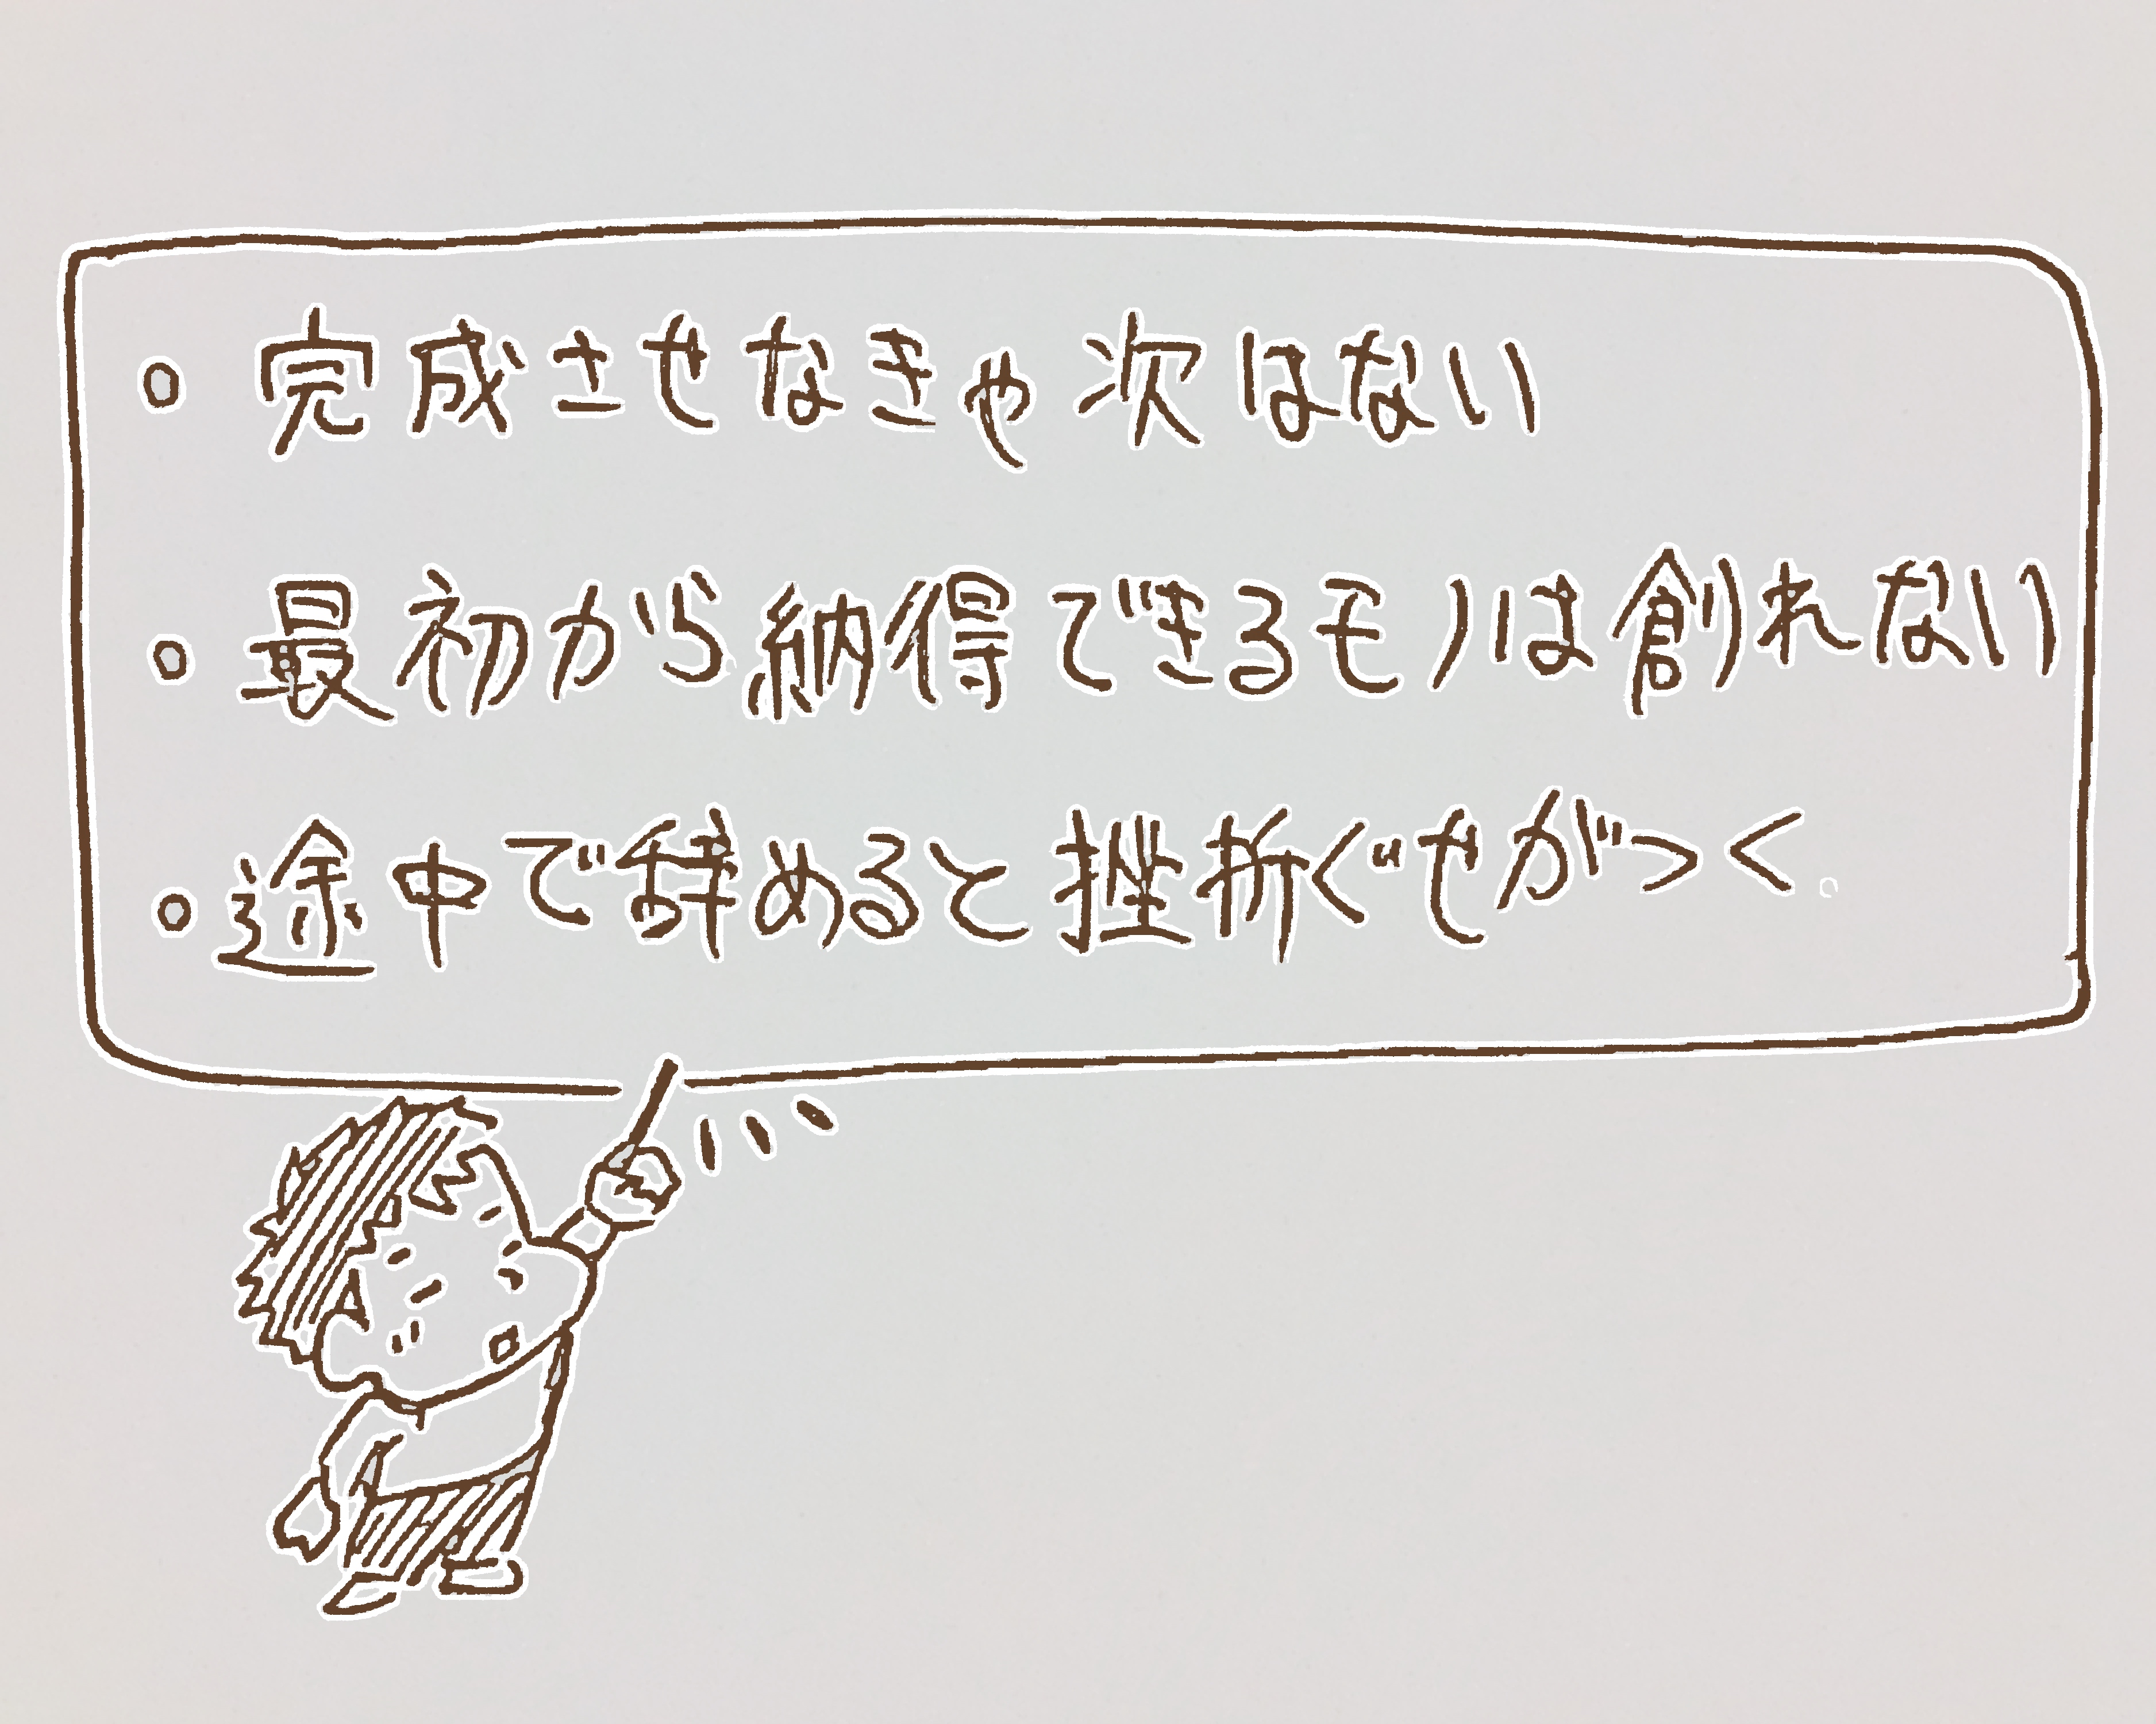 ○ 完成させなきゃ次はない
○ 最初から納得できるモノは創れない
○ 途中で辞めると挫折ぐせがつく。